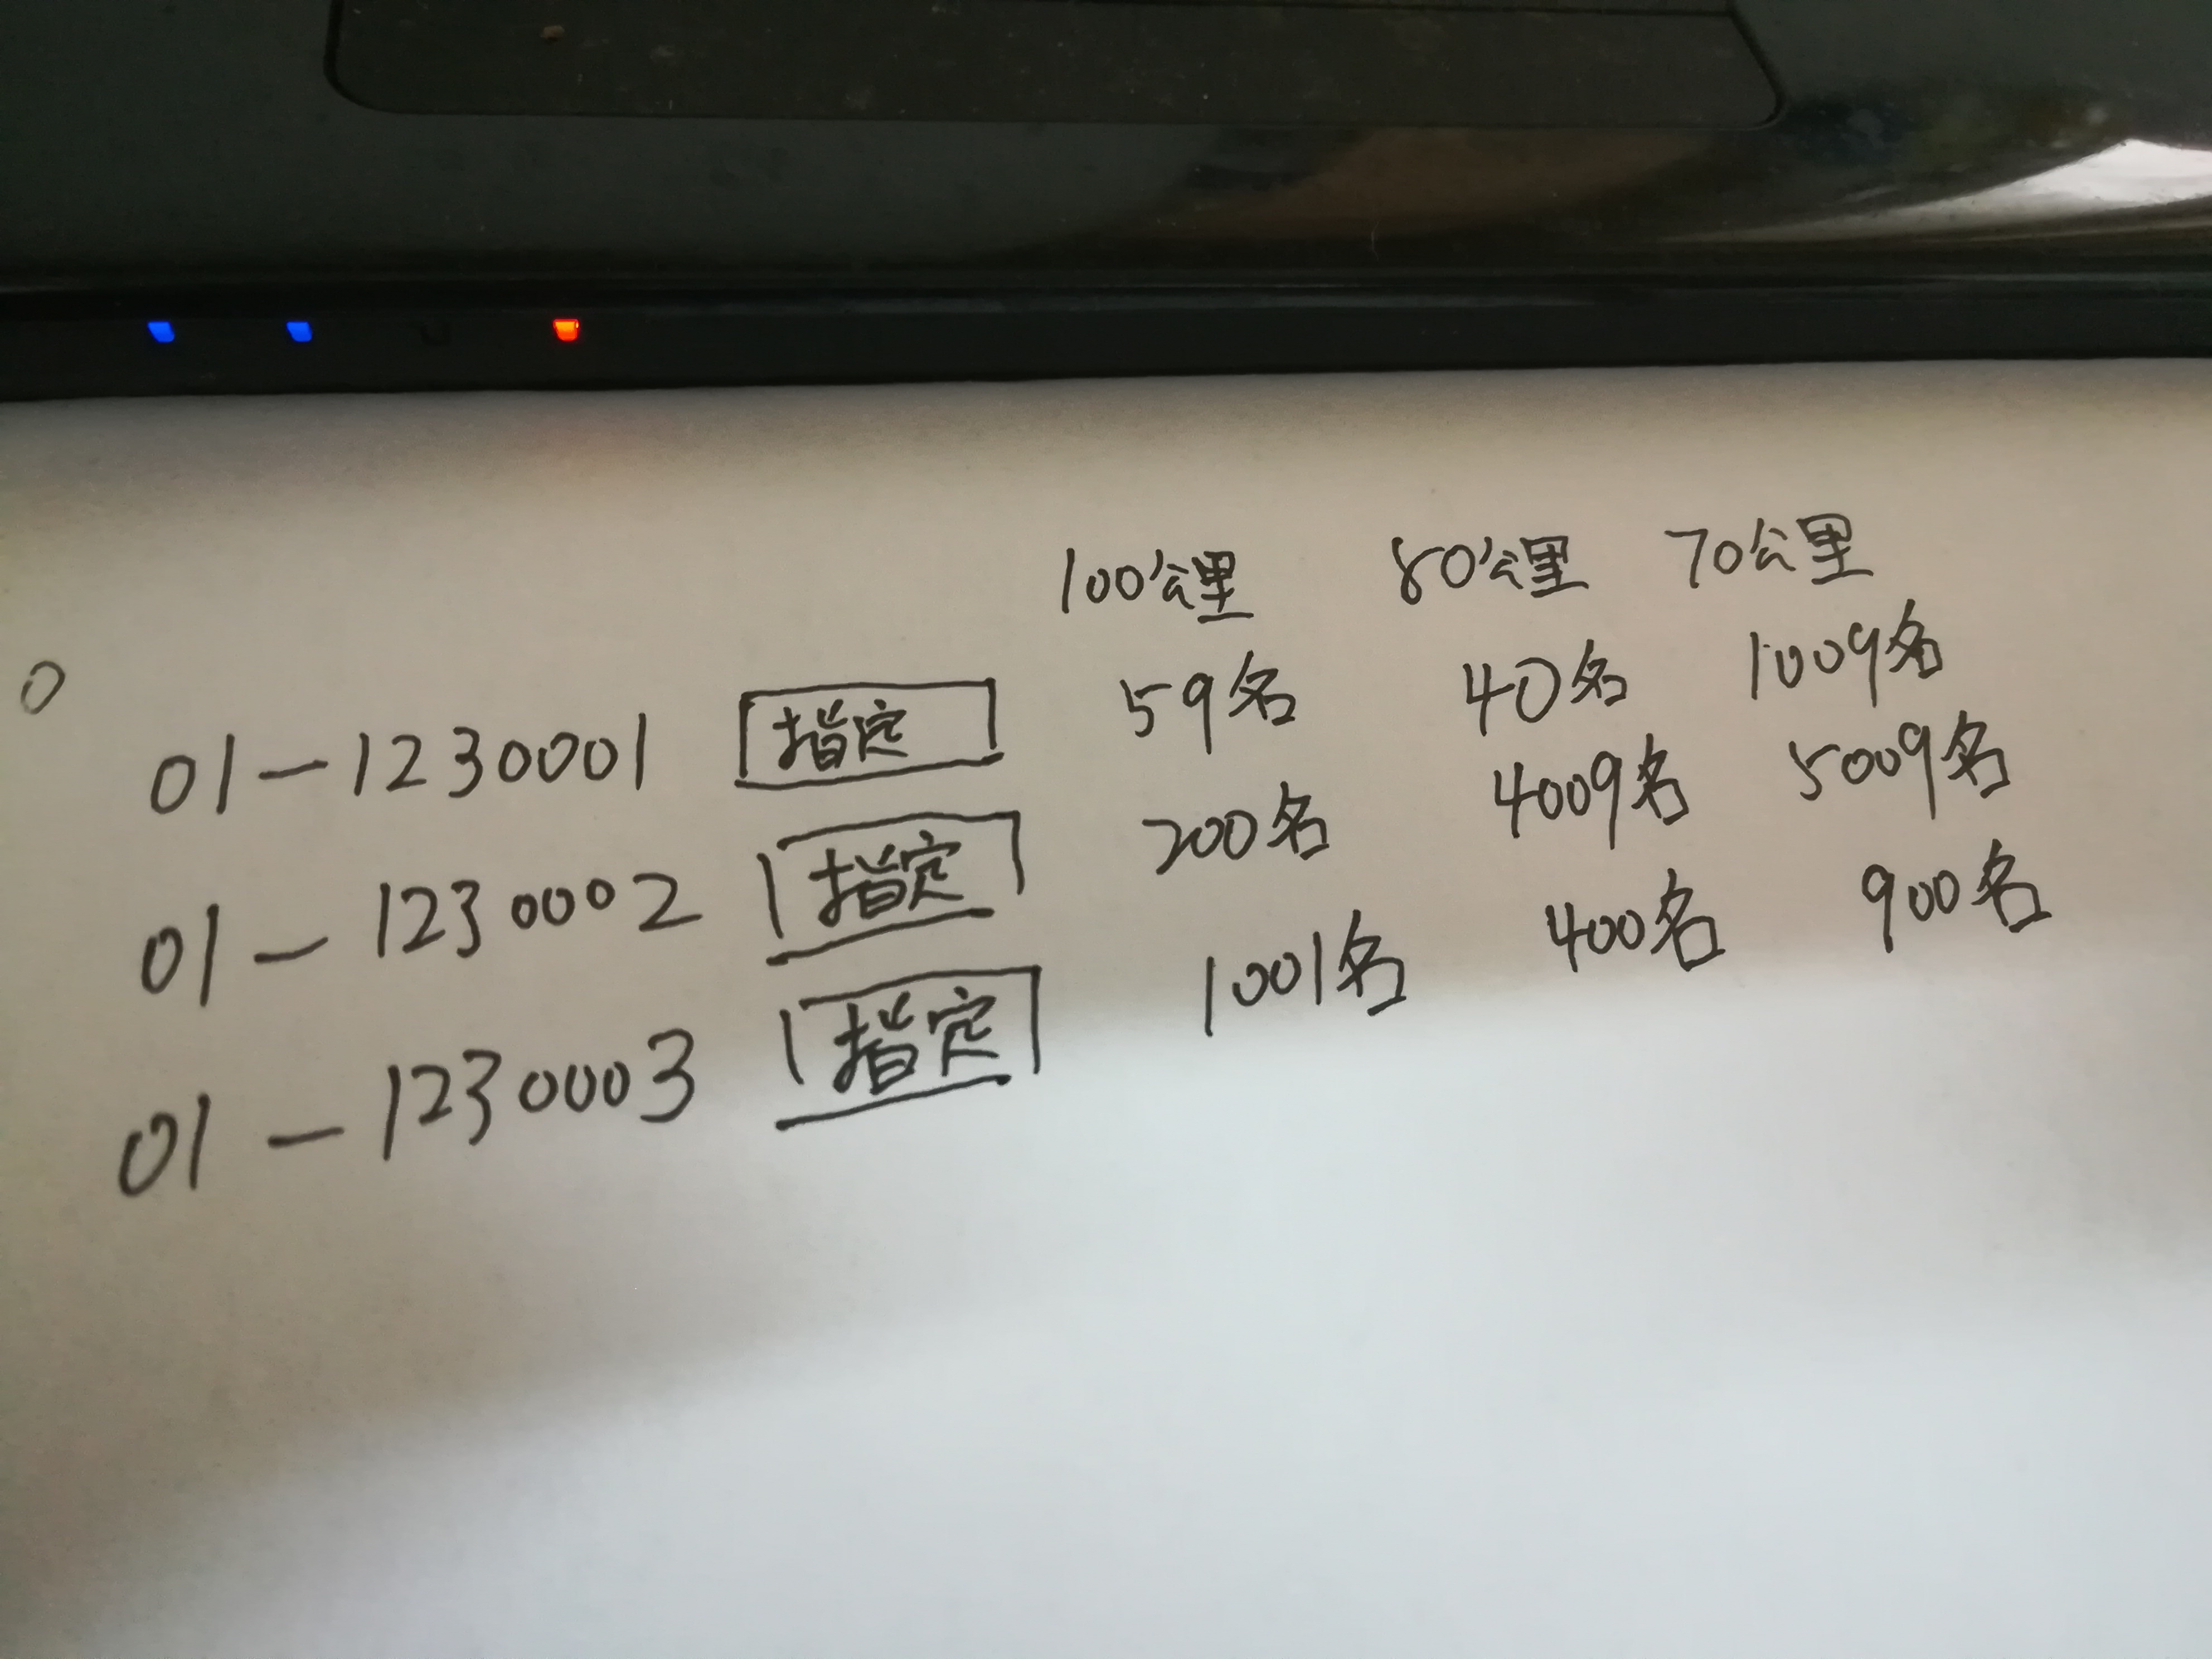 100公里 80公里 70公里
0
01-1230001 指定 59名 40名 1009名
01-1230002 指定 200名 4009名 5009名
01-1230003 指定 1001名 400名 900名